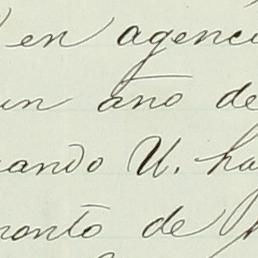 en agenci
un año de
ando U. ha
onto de